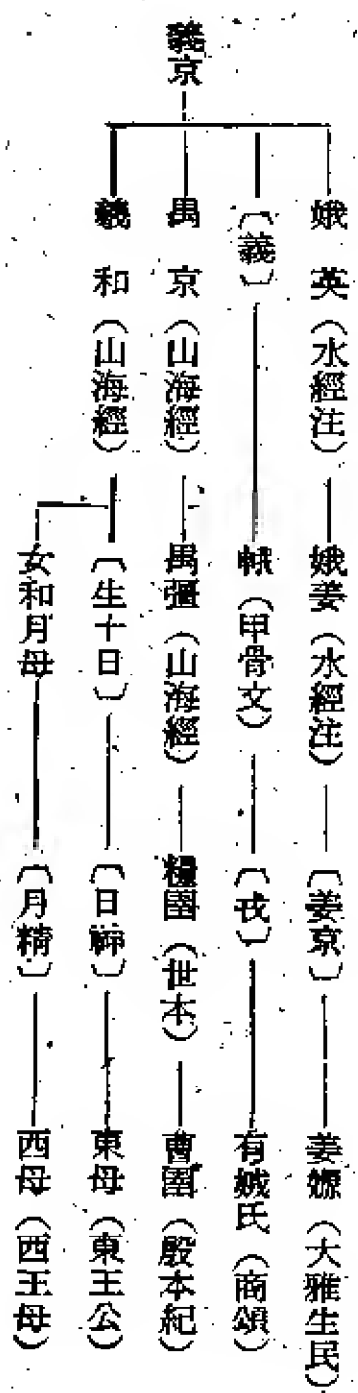 羲京
娥英（水經注）娥姜（水經注）〔姜京〕姜嫄（大雅生民）
〔義〕（甲骨文）〔戎〕有娀氏（商頌）
禺京（山海經）禺彊（山海經）糧圉（世本）曹圉（殷本紀）
羲和（山海經）〔生十日〕〔日御〕東母（東王公）
女和月母〔月精〕西母（西王母）